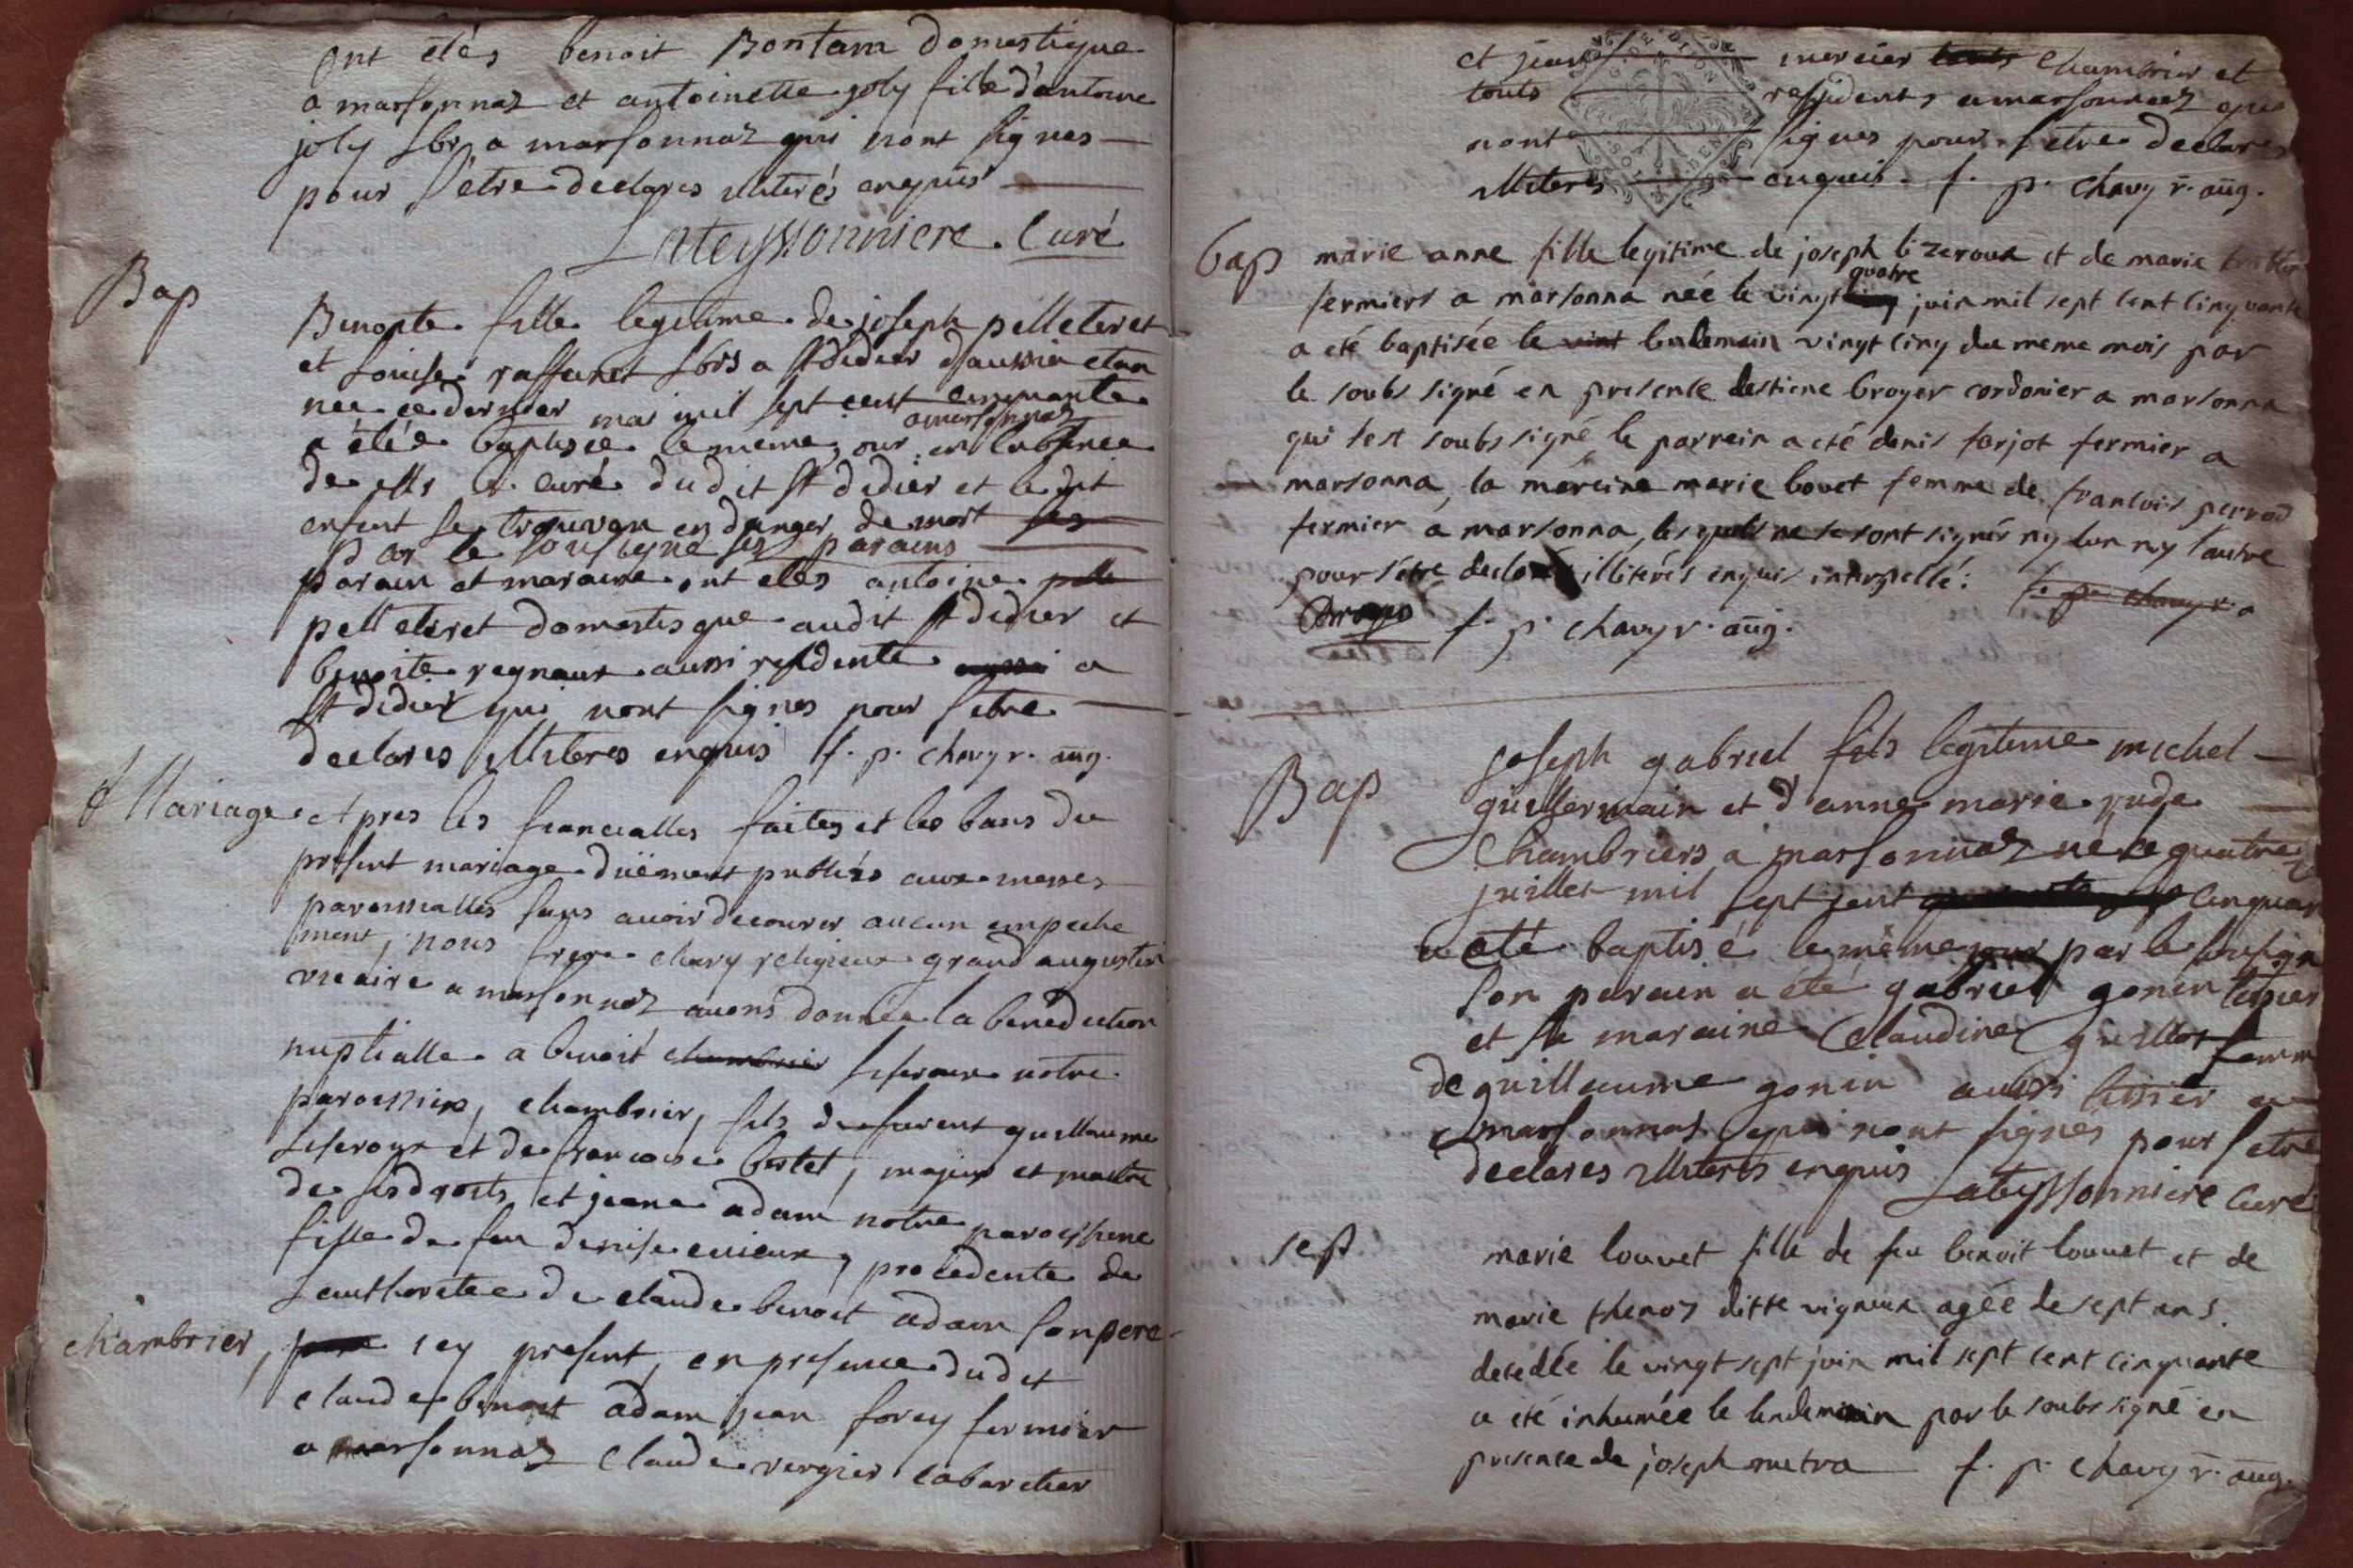 ont étés benoit Bontam domestique
a marsonnaz et antoinette joly fille d'antoine
joly lbr a marsonnaz qui nont signes
pour s'etre declares illiterés enquis
Lateyssonniere. Curé
Bap
Benoite fille legitime de joseph pelleteret
et Louise raffanet lbrs a st didier d'aussia etan
née ce dernier mai mil sept cent cinquante
a marsonnaz
a étée baptisée le meme jour en l'absence
de curé dudit st didier et ledit
enfent se trouvan en danger de mort ses
par le sousigné ses parains
parain et maraine ont etés antoine pelle
pelleteret domestisque audit st didier et
benoite regnaux aussi residente aussi a
st didier qui nont signes pour setre
declares illiteres enquis f. p. chavy r. aug.
Mariage Apres les fiancialles faites et les bans du
present mariage düement publiés aux messes
paroissialles sans avoir decouver aucun empeche
ment, nous frere chavy religieux grand augustin
vicaire a marsonnaz avons donnée la benediction
nuptialle a benoit chambrier liseroux notre
paroissien, chambrier, fils de furent guillaume
liseroux et de francoise bertet, majeur et maitre
de ses droits et jeane adam notre paroissiene
fille de feu denise cuieux, procedente de
lauthoritee de claude benoit adam son pere
chambrier, icy present, en presence dudit
claude benoit adam jean forey fermier
a marsonnaz claude vergier cabaretier
et jean mercier touts chambrier et
touts residents a marsonnaz qui
nont signes pour setre declares
illiteres enquis. f. p. chavy r. aug.
bap marie anne fille legitime de joseph lizeroux et de marie
quatre
fermiers a marsonna née le vingt cinq juin mil sept cent cinquante
a été baptisée le vint lendemain vingt cinq du meme mois par
le soubs signé en presence destiene broyer cordonier a marsonna
qui sest soubs signé, le parrein a été denis farjot fermier a
marsonna, la máreine marie bovet femme de francois perrod
fermier a marsonna, lesquels ne se sont signés ny lun ny lautre
pour s'être declarés illiterés enquis interpellé: f. p. chavy r. a
Broyer f. p. chavy r. aug.
Bap
joseph gabriel fils legitime michel
guillermain et d'anne marie rude
chambriers a marsonnaz né le quatre
juillet mil sept cent cinquan
a été baptisé le même jour par le sousign
son parain a été gabriel gonin tissier
et sa maraine Claudine guillot femm
de guillaume gonin aussi tissier a
marsonnas qui nont signes pour setre
declares illiteres enquis Lateyssonniere Curé
sep
marie louvet fille de feu benoit louvet et de
marie thenoz ditte vigneux agée de sept ans.
decedée le vingt sept juin mil sept cent cinquante
a été inhumée le lendemain par le soubs signé en
presence de joseph metra f. p. chavy r. aug.